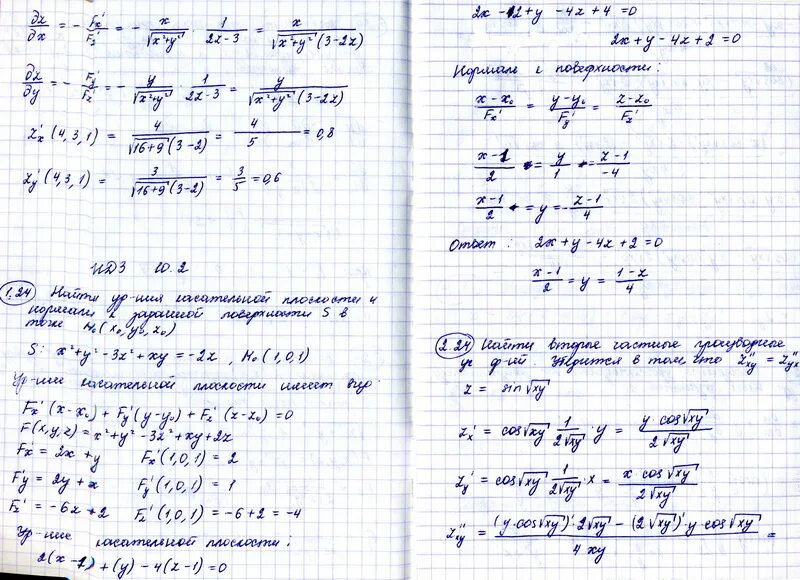 ∂z/∂x = - F'x/F'z = - x/√(x²+y²) · 1/(2z-3) = x/(√(x²+y²) (3-2z))
∂z/∂y = - F'y/F'z = - y/√(x²+y²) · 1/(2z-3) = y/(√(x²+y²) (3-2z))
z'x (4,3,1) = 4/(√(16+9) (3-2)) = 4/5 = 0,8
z'y (4,3,1) = 3/(√(16+9) (3-2)) = 3/5 = 0,6
ИДЗ 10.2
1.24 Найти ур-ния касательной плоскости и
нормали к заданной поверхности S в
точке M₀ (x₀, y₀, z₀)
S: x²+y²-3z²+xy = -2z, M₀ (1,0,1)
Ур-ние касательной плоскости имеет вид:
F'x (x-x₀) + F'y (y-y₀) + F'z (z-z₀) = 0
F(x,y,z) = x²+y²-3z²+xy+2z
F'x = 2x+y F'x (1,0,1) = 2
F'y = 2y+x F'y (1,0,1) = 1
F'z = -6z+2 F'z (1,0,1) = -6+2 = -4
Ур-ние касательной плоскости:
2(x-1) + (y) - 4(z-1) = 0
2x - 2 + y - 4z + 4 = 0
2x + y - 4z + 2 = 0
Нормаль к поверхности:
(x-x₀)/F'x = (y-y₀)/F'y = (z-z₀)/F'z
(x-1)/2 = y/1 = (z-1)/-4
(x-1)/2 = y = -(z-1)/4
Ответ: 2x+y-4z+2=0
(x-1)/2 = y = (1-z)/4
2.24 Найти вторые частные производные
ук ф-ий. Убедится в том что z''xy = z''yx
z = sin√xy
z'x = cos√xy · 1/(2√xy) · y = (y cos√xy)/(2√xy)
z'y = cos√xy · 1/(2√xy) · x = (x cos√xy)/(2√xy)
z''xy = ((y·cos√xy)' 2√xy - (2√xy)' y cos√xy)/(4xy) =